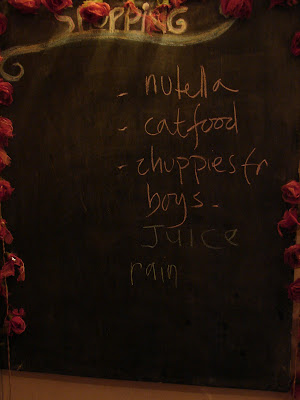 SHOPPING
- nutella
- catfood
- chuppies fr
boys.
JUICE
rain